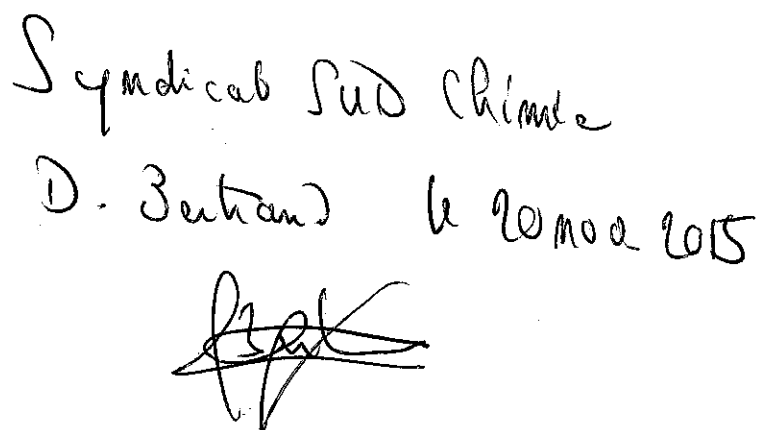 Syndicat SUD Chimie
D. Bertrand le 20 nov 2015